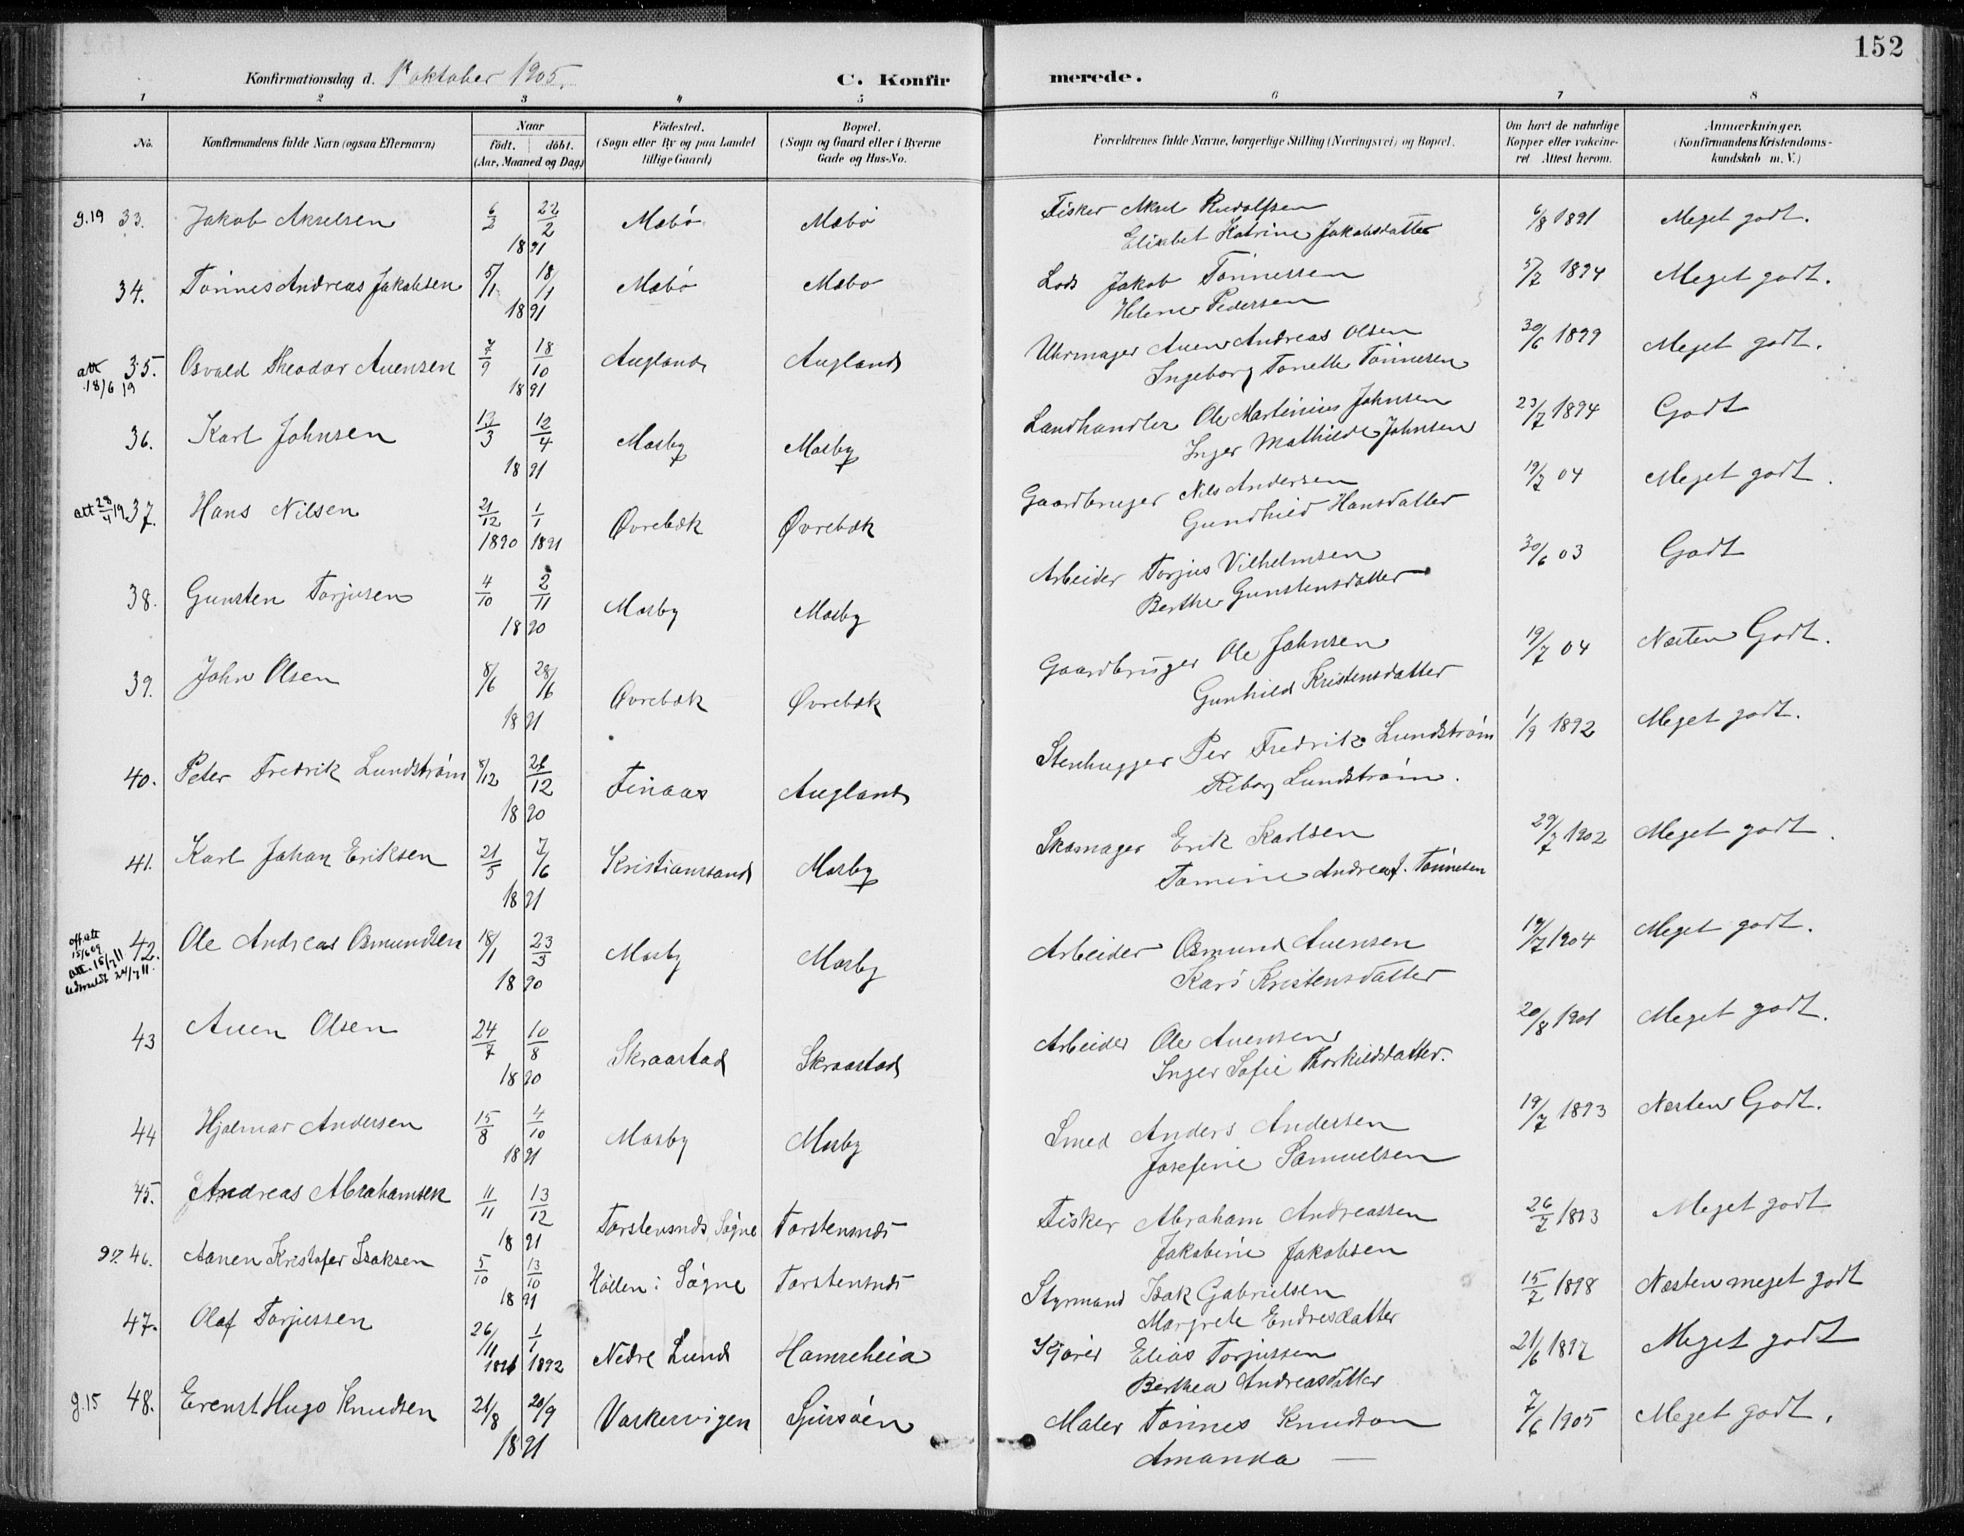 152
Konfirmationsdag d. 1ste oktober 1905.
C. Konfirmerede.
1 2 3 4 5 6 7 8
No.
Konfirmandens fulde Navn (ogsaa Efternavn)
Naar
født. døbt.
(Aar, Maaned og Dag)
Fødested.
(Sogn eller By og paa Landet
tillige Gaard)
Bopæl.
(Sogn og Gaard eller i Byerne
Gade og Hus-No.
Forældrenes fulde Navne, borgerlige Stilling (Næringsvei) og Bopæl.
Om havt de naturlige
Kopper eller vakcine-
ret Attest herom.
Anmærkninger.
(Konfirmandens Kristendoms-
kundskab m. V.)
g.19 33. Jakob Akselsen 6/2 22/2 1891 Mæbø Mæbø Fisker Aksel Rudolfsen 6/8 1891 Meget godt.
Elisabet Katrine Jakobsdatter
34. Tønnes Andreas Jakobsen 5/1 18/1 1891 Mæbø Mæbø Lods Jakob Tønnessen 5/7 1894 Meget godt.
Helene Pedersen
att 18/6 19 35. Osvald Theodor Auensen 7/9 18/10 1891 Augland Augland Uhrmager Auen Andreas Olsen 30/6 1899 Meget godt.
Ingeborg Tonette Tønnesen
36. Karl Johnsen 13/3 12/4 1891 Mosby Mosby Landhandler Ole Martinius Johnsen 23/7 1894 Godt
Inger Mathilde Johnsen
att 28/4 19 37. Hans Nilsen 21/12 1890 1/1 1891 Øvrebæk Øvrebæk Gaardbruger Nils Andersen 19/7 04 Meget godt.
Gundhild Hansdatter
38. Gunsten Torjusen 4/10 2/11 1890 Mosby Mosby Arbeider Torjus Vilhelmsen 30/6 03 Godt
Berthe Gunstensdatter
39. John Olsen 8/6 28/6 1891 Øvrebæk Øvrebæk Gaardbruger Ole Johnsen 19/7 04 Næsten Godt.
Gunhild Kristensdatter
40. Peter Fredrik Lundstrøm 8/12 26/12 1890 Finaas Augland Stenhugger Per Fredrik Lundstrøm 1/9 1892 Meget godt.
Riborg Lundstrøm.
41. Karl Johan Eriksen 21/5 7/6 1891 Kristianssand Mosby Skomager Erik Karlsen 29/7 1902 Meget godt.
Tomine Andrea J. Tønnesen
off. att 15/6 09 att. 15/7 11 udmeldt 24/7 11. 42. Ole Andreas Osmundsen 18/1 23/3 1890 Mosby Mosby Arbeider Osmund Auensen 19/7 1904 Meget godt.
Kari Kristensdatter
43 Auen Olsen 24/7 10/8 1890 Skraastad Skraastad Arbeider Ole Auensen 20/8 1901 Meget godt.
Inger Sofie Thorkildsdatter.
44 Hjalmar Andersen 15/8 4/10 1891 Mosby Mosby Smed Anders Andersen 19/7 1893 Næsten Godt.
Josefine Samuelsen
45. Andreas Abrahamsen 11/11 13/12 1891 Torstensnds, Søgne Torstensnds Fisker Abraham Andreassen 26/7 1893 Meget godt
Jakobine Jakobsen
46. Aanen Kristofer Isaksen 5/10 13/10 1891 Høllen i Søgne Torstensnds Styrmand Isak Gabrielsen 15/7 1898 Næsten meget godt
Margrete Endresdatter
47. Olaf Torjussen 26/11 1891 1/1 1892 Nedre Lund Hamreheia Elias Torjussen 21/6 1897 Meget godt
Berthea Andreasdatter
g.15 48. Erenst Hugo Knudsen 21/8 20/9 1891 Vaskervigen Maler Tønnes Knudson 7/6 1905 Meget godt.
Amanda —